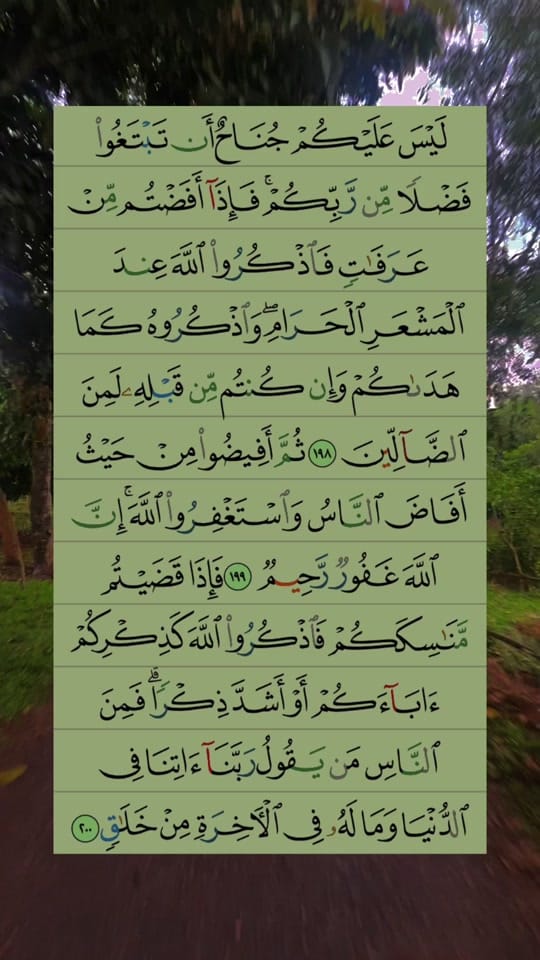 لَيْسَ عَلَيْكُمْ جُنَاحٌ أَن تَبْتَغُوا۟
فَضْلًا مِّن رَّبِّكُمْ ۚ فَإِذَآ أَفَضْتُم مِّنْ
عَرَفَـٰتٍ فَٱذْكُرُوا۟ ٱللَّهَ عِندَ
ٱلْمَشْعَرِ ٱلْحَرَامِ ۖ وَٱذْكُرُوهُ كَمَا
هَدَىٰكُمْ وَإِن كُنتُم مِّن قَبْلِهِۦ لَمِنَ
ٱلضَّآلِّينَ ١٩٨ ثُمَّ أَفِيضُوا۟ مِنْ حَيْثُ
أَفَاضَ ٱلنَّاسُ وَٱسْتَغْفِرُوا۟ ٱللَّهَ ۚ إِنَّ
ٱللَّهَ غَفُورٌ رَّحِيمٌ ١٩٩ فَإِذَا قَضَيْتُم
مَّنَـٰسِكَكُمْ فَٱذْكُرُوا۟ ٱللَّهَ كَذِكْرِكُمْ
ءَابَآءَكُمْ أَوْ أَشَدَّ ذِكْرًا ۗ فَمِنَ
ٱلنَّاسِ مَن يَقُولُ رَبَّنَآ ءَاتِنَا فِى
ٱلدُّنْيَا وَمَا لَهُۥ فِى ٱلْـَٔاخِرَةِ مِنْ خَلَـٰقٍ ٢٠٠